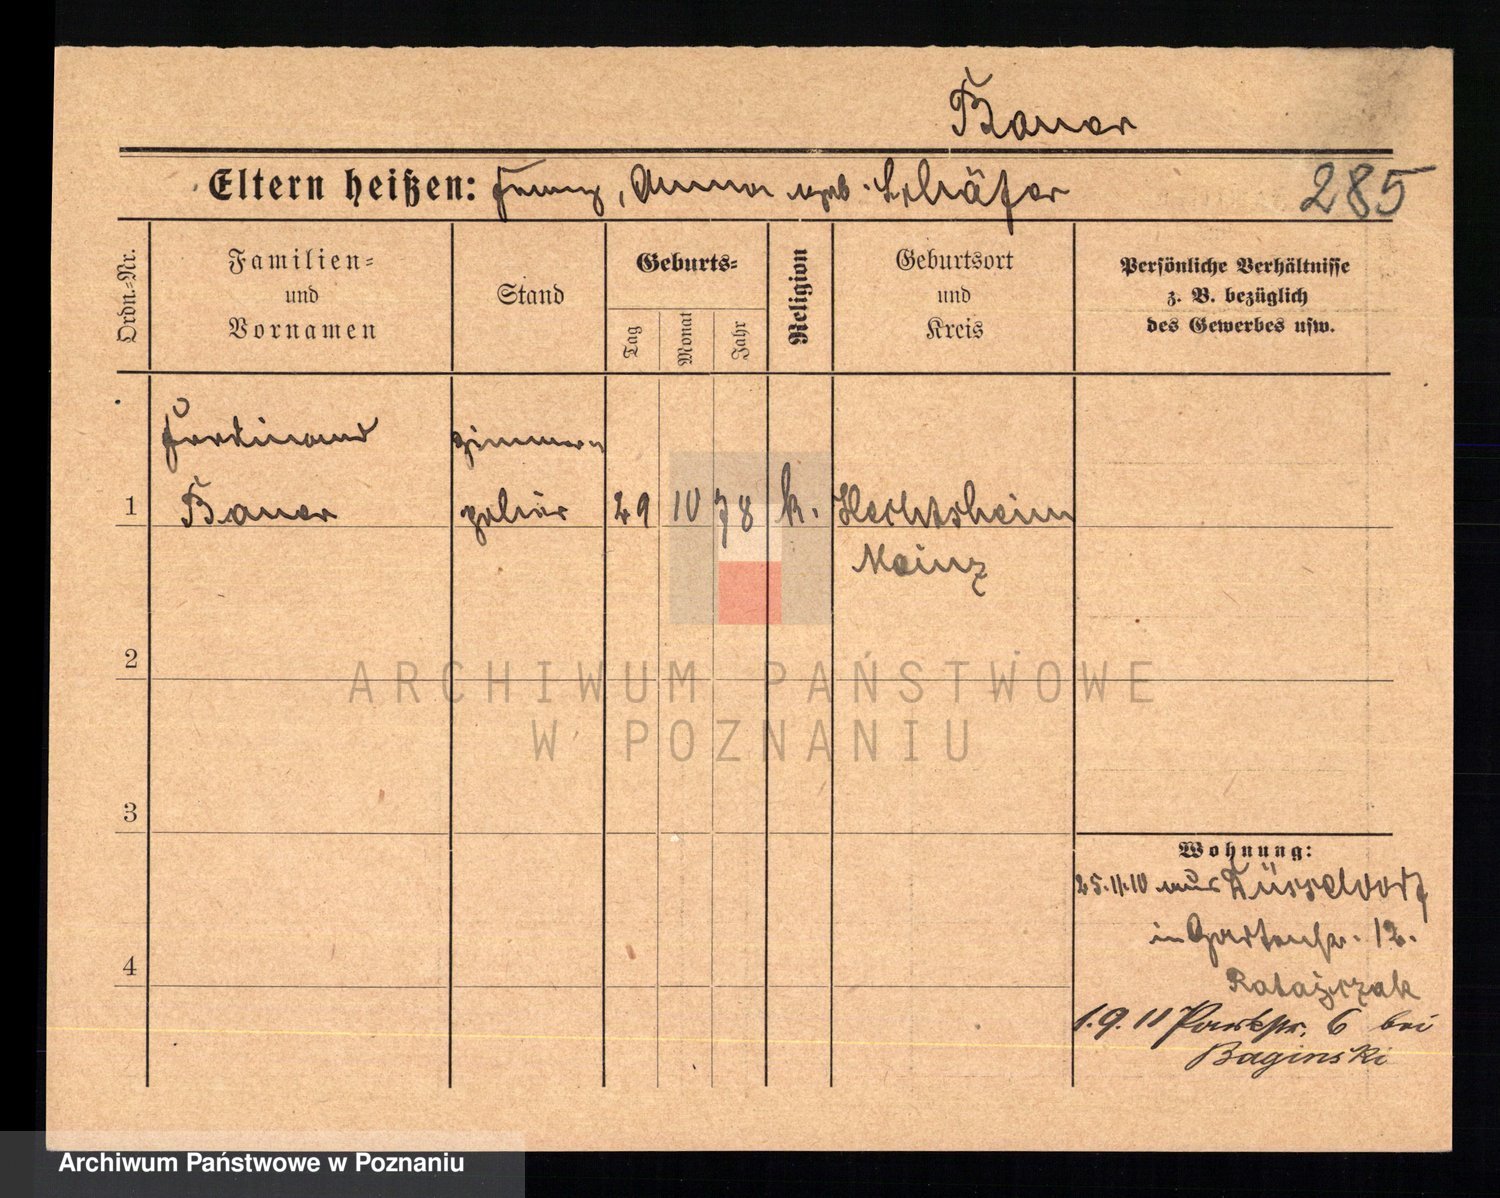 Bauer
Eltern heißen: Franz, Anna geb. Schäfer
285
Ordn.-Nr.
Familien-
und
Vornamen
Stand
Geburts-
Tag
Monat
Jahr
Religion
Geburtsort
und
Kreis
Persönliche Verhältnisse
z. B. bezüglich
des Gewerbes usw.
Ferdinand
Zimmer-
1
Bauer
polier
29
10
78
k.
Hechtsheim
Mainz
2
3
4
Wohnung:
25.11.10 aus Düsseldorf
in Gartenstr. 12.
Ratajczak
1.9.11 Parkstr. 6 bei
Baginski
ARCHIWUM PAŃSTWOWE
W POZNANIU
Archiwum Państwowe w Poznaniu